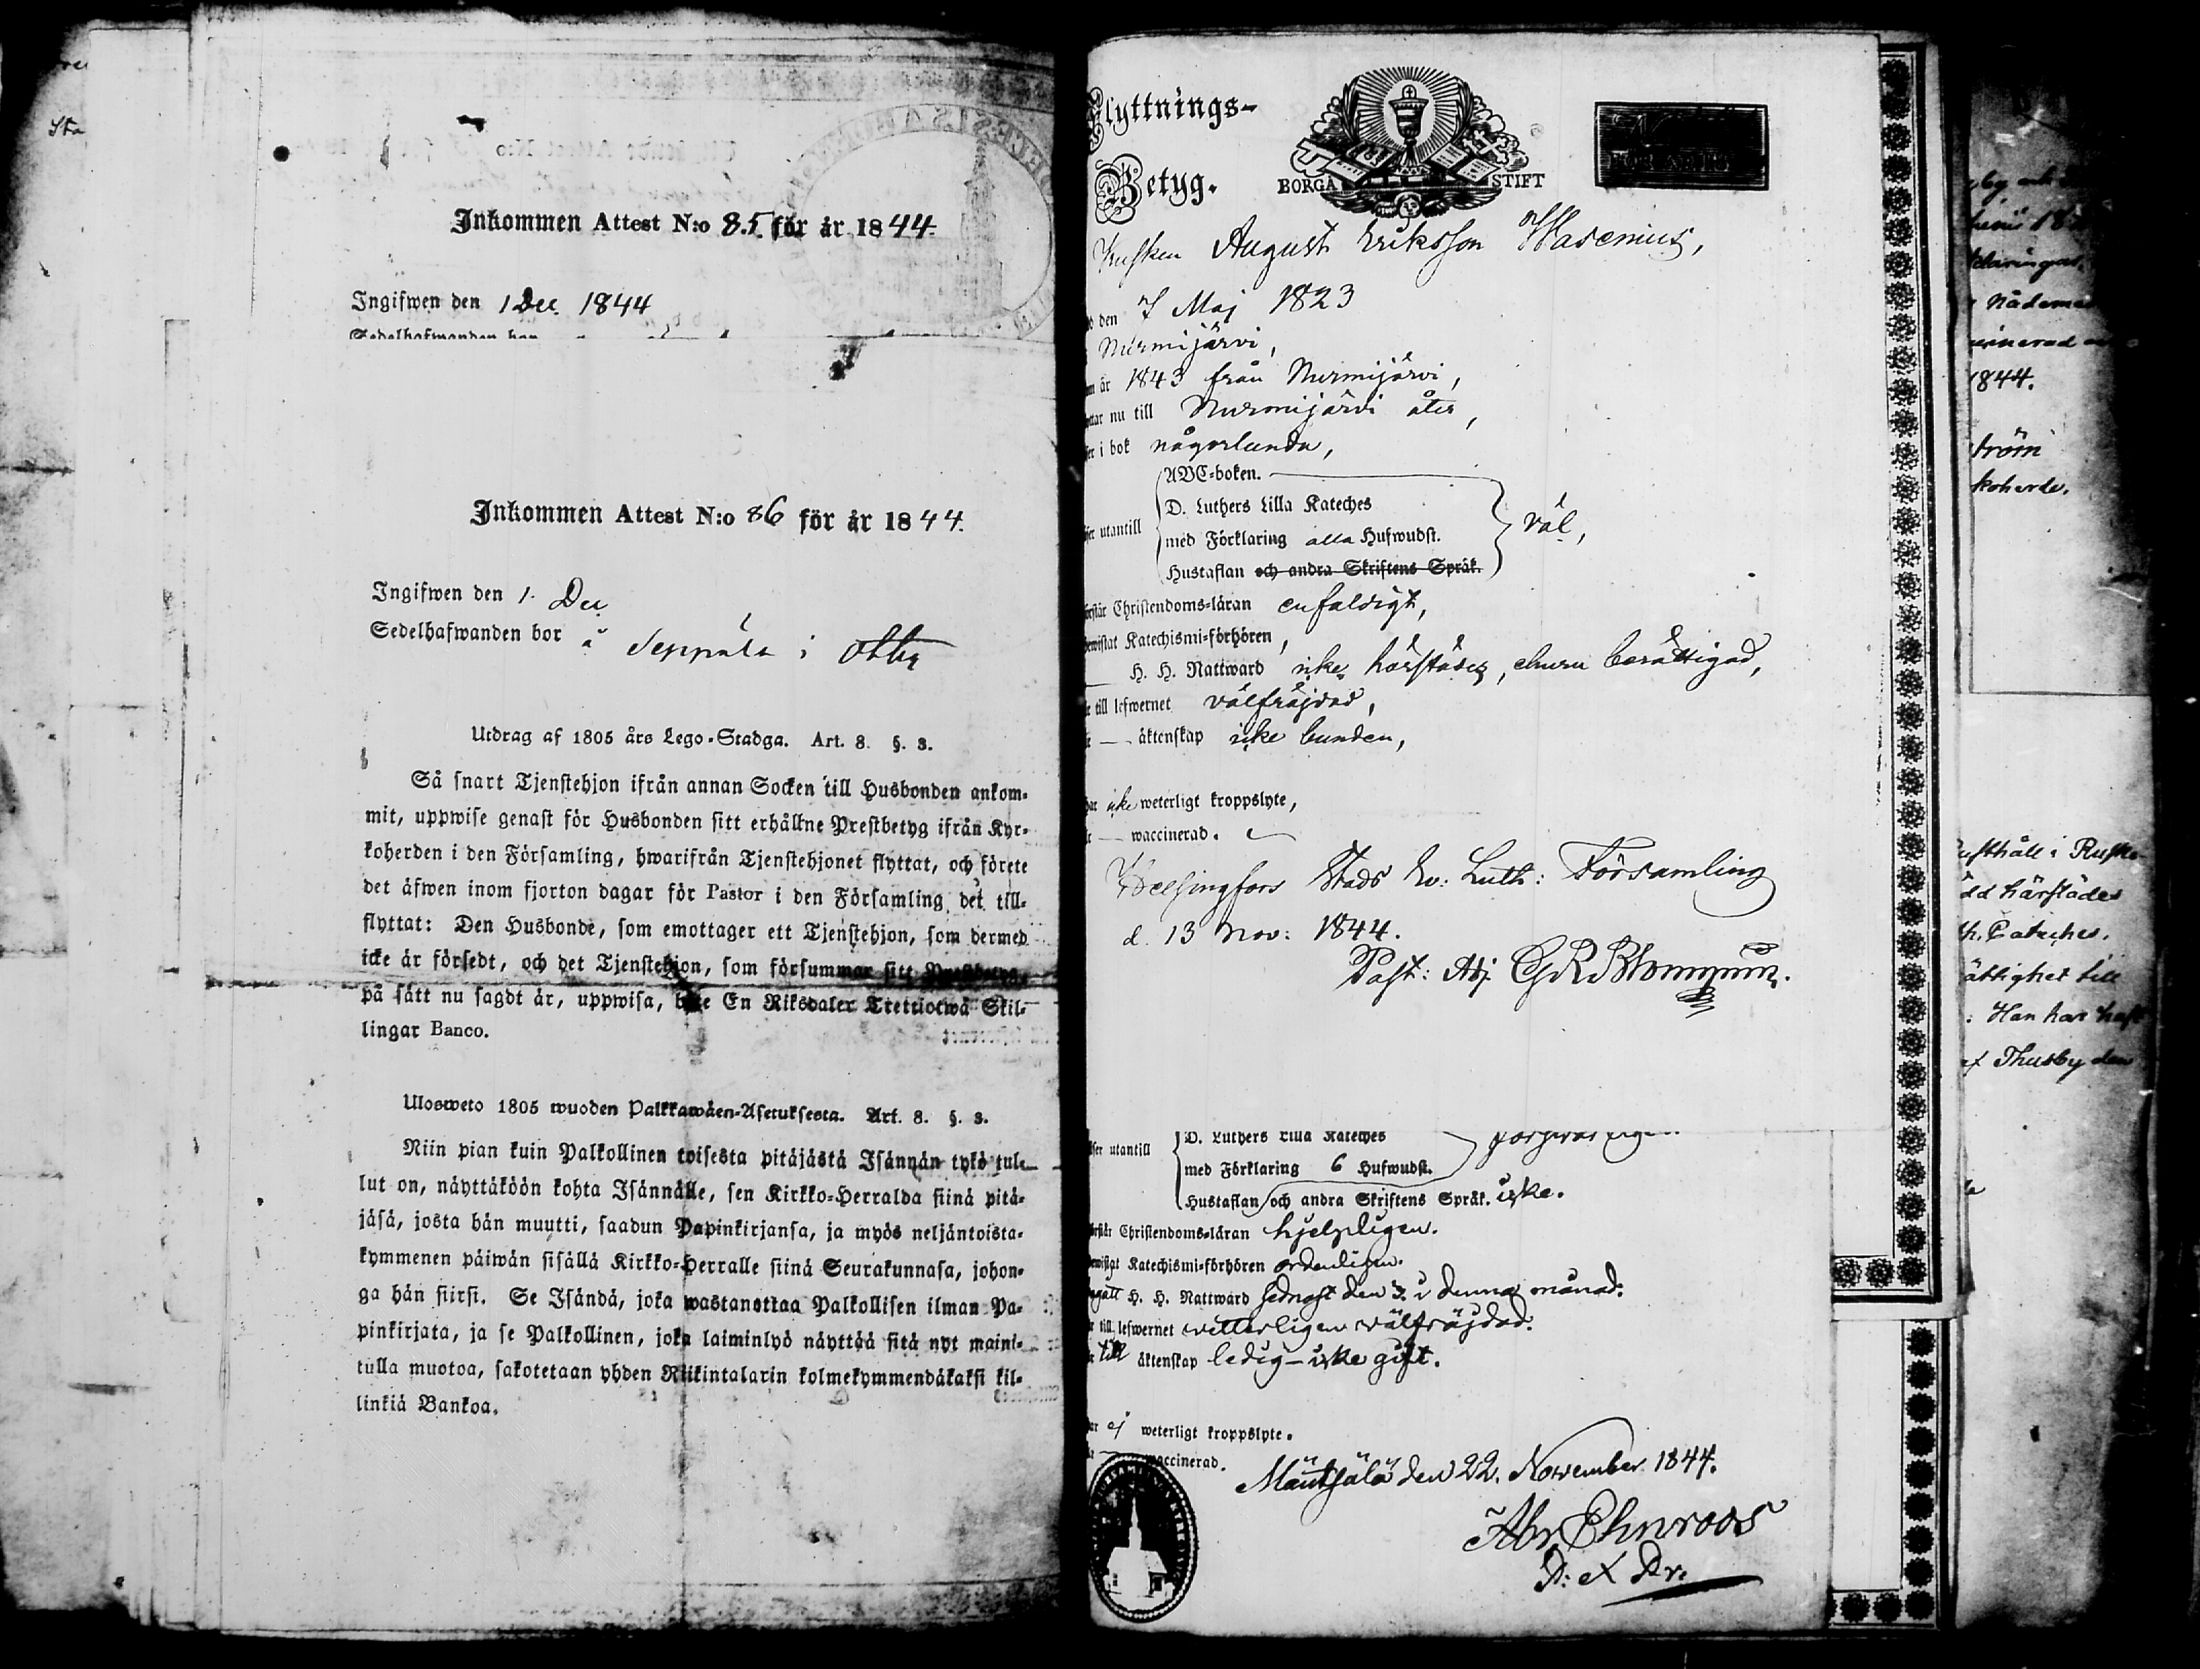 Inkommen Attest N:o 85 för år 1844.
Ingifwen den 1 Dec 1844
Sedelhafwanden bor
Inkommen Attest N:o 86 för år 1844.
Ingifwen den 1. Dec
Sedelhafwanden bor å Seppälä i
Utdrag af 1805 års Lego-Stadga. Art. 8. §. 3.
Så snart Tjenstehjon ifrån annan Socken till Husbonden ankom-
mit, uppwise genast för Husbonden sitt erhållne Prestbetyg ifrån Kyr-
koherden i den Församling, hwarifrån Tjenstehjonet flyttat, och förete
det äfwen inom fjorton dagar för Pastor i den Församling det till-
flyttat: Den Husbonde, som emottager ett Tjenstehjon, som dermed
icke är försedt, och det Tjenstehjon, som försummar sitt Prestbetyg,
på sätt nu sagdt är, uppwisa, böte En Riksdaler Trettiotwå Skil-
lingar Banco.
Ulosweto 1805 wuoden Palkkawäen-Asetuksesta. Art. 8. §. 3.
Niin pian kuin Palkollinen toisesta pitäjästä Isännän tykö tul-
lut on, näyttäköön kohta Isännälle, sen Kirkko-Herralda siinä pitä-
jäsä, josta hän muutti, saadun Papinkirjansa, ja myös neljäntoista-
kymmenen päiwän sisällä Kirkko-Herralle siinä Seurakunnasa, johon-
ga hän siirsi. Se Isändä, joka wastanottaa Palkollisen ilman Pa-
pinkirjata, ja se Palkollinen, joka laiminlyö näyttää sitä nyt maini-
tulla muotoa, sakotetaan yhden Riikintalarin kolmekymmendäkaksi kil-
linkiä Bankoa.
Flyttnings-
Betyg.
BORGÅ STIFT
Kusken August Eriksson Wasenius,
den 7 Maj 1823
Nurmijärvi,
år 1843 från Nurmijärvi,
nu till Nurmijärvi åter,
i bok någorlunda,
ABC-boken.
D. Luthers Lilla Kateches
utantill med Förklaring alla Hufwudst. väl,
Hustaflan och andra Skriftens Språk.
Christendoms-läran enfaldigt,
Katechismi-förhören,
H. H. Nattward icke härstädes, ehuru berättigad,
till lefwernet välfräjdad,
äktenskap icke bunden,
icke weterligt kroppslyte,
waccinerad.
Helsingfors Stads Ev: Luth: Församling
d. 13 Nov: 1844.
Past: Adj.
utantill D. Luthers Lilla Kateches
med Förklaring 6 Hufwudst.
Hustaflan och andra Skriftens Språk. icke.
Christendoms-läran hjelpligen.
Katechismi-förhören ordentligen.
H. H. Nattward sednast den 3. i denna månad.
till lefwernet vetterligen välfräjdad.
till äktenskap ledig - icke gift.
ej weterligt kroppslyte.
waccinerad.
Mäntsälä den 22. November 1844.
Abr Ehnroos
18
Nådemed
1844.
ström
koherde.
Rusthåll i Rusk
härstädes
Cateches.
ättighet till
: Han har haft
af Thusby den